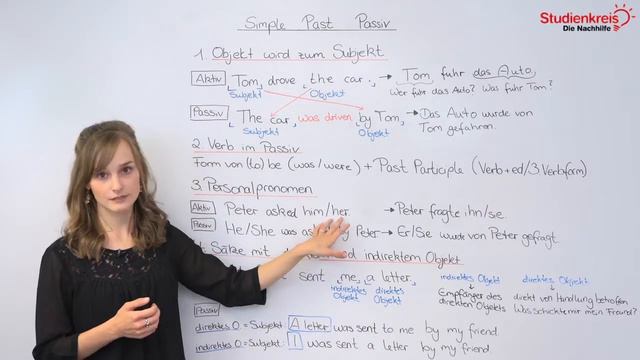 Simple Past Passiv
Studienkreis
Die Nachhilfe
1. Objekt wird zum Subjekt
Aktiv Tom drove the car. → Tom fuhr das Auto.
Subjekt Objekt Wer fuhr das Auto? Was fuhr Tom?
Passiv The car was driven by Tom. → Das Auto wurde von
Subjekt Objekt Tom gefahren.
2. Verb im Passiv
Form von (to) be (was/were) + Past Participle (Verb+ed/3.Verbform)
3. Personalpronomen
Aktiv Peter asked him/her. → Peter fragte ihn/sie.
Passiv He/She was Peter → Er/Sie wurde von Peter gefragt.
Sätze mit indirektem Objekt
sent me a letter.
indirektes Objekt direktes Objekt
indirektes Objekt direktes Objekt
Empfänger des direkten Objekts
direkt von Handlung betroffen
Was schickte mir mein Freund?
Passiv
direktes O. = Subjekt: A letter was sent to me by my friend.
indirektes O. = Subjekt: I was sent a letter by my friend.